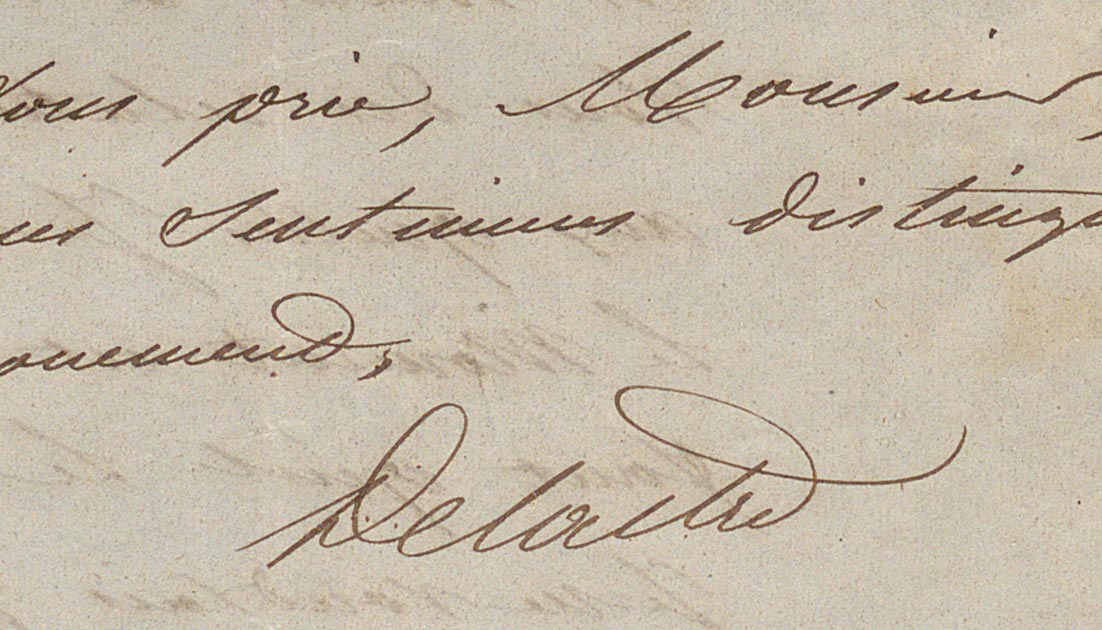 Vous prie, Monsieur,
sentimens distingu
ouement,
Delattre